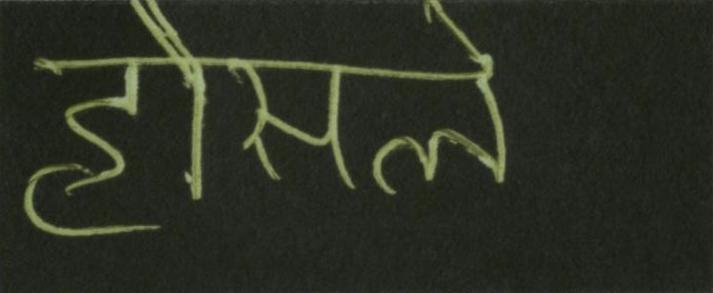 हौसले